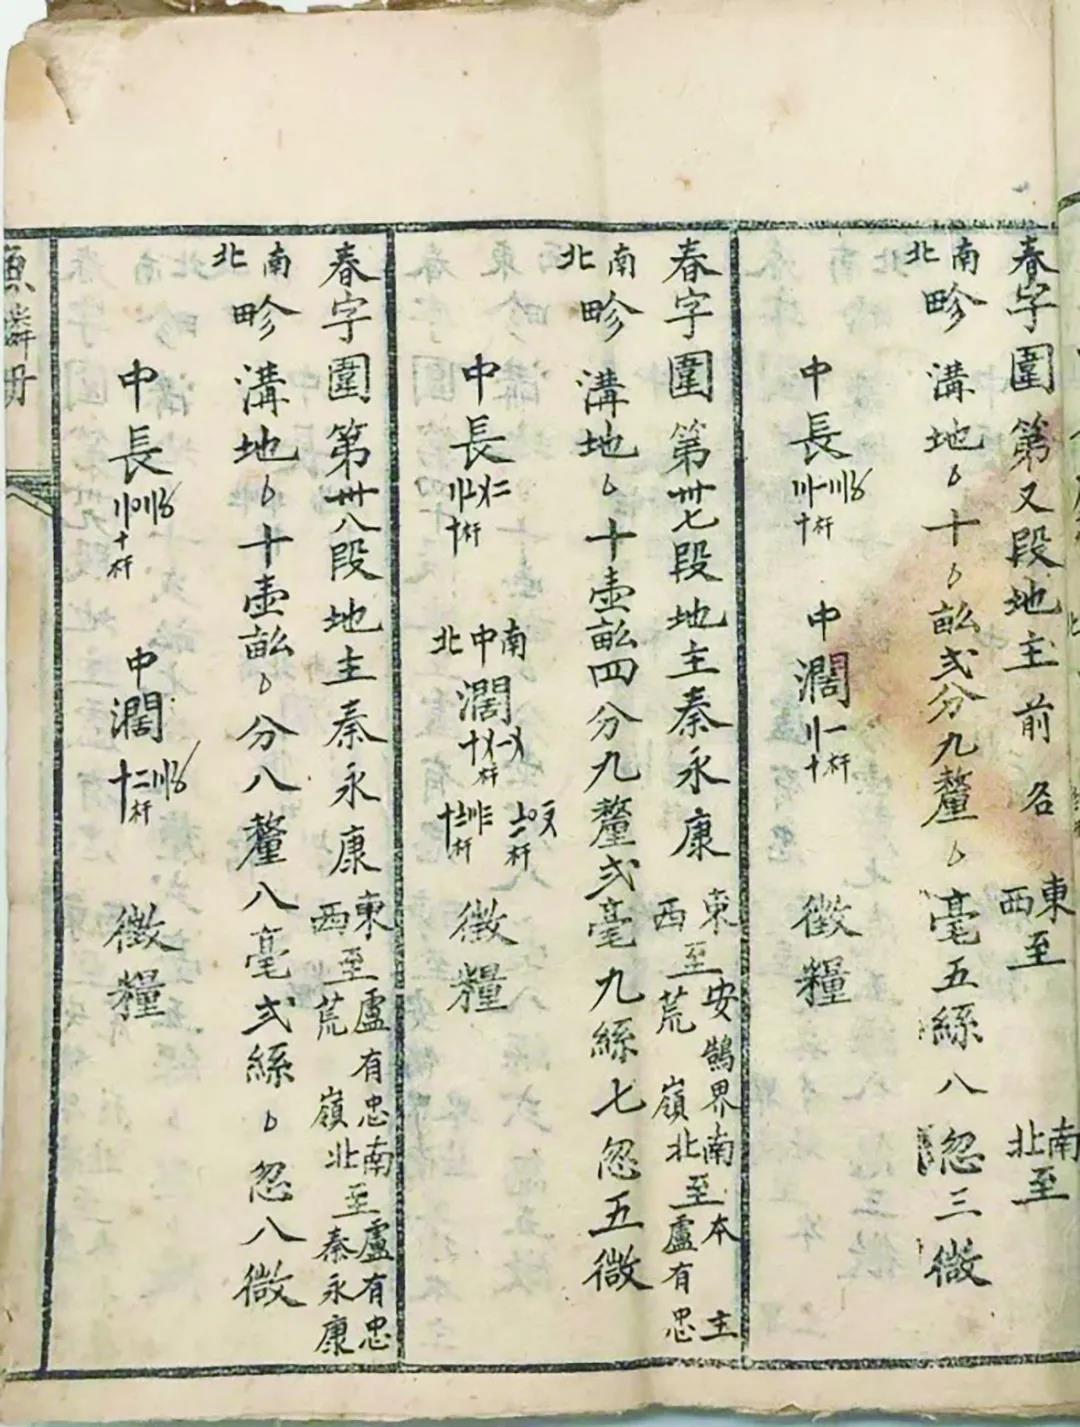 春字圍第又段地主前名 東西至 南北至
南北畛溝地〇十〇畝弍分九釐〇毫五絲八忽三微
中長 十杆 中濶 十杆 徵糧
春字圍第卅七段地主秦永康 東西至 安鵠界 荒嶺 南北至 本主 盧有忠
南北畛溝地〇十壹畝四分九釐弍毫九絲七忽五微
中長 十杆 南中北濶 十杆 杆 十杆 徵糧
春字圍第卅八段地主秦永康 東西至 盧有忠 荒嶺 南北至 盧有忠 秦永康
南北畛溝地〇十壹畝〇分八釐八毫弍絲〇忽八微
中長 十杆 中濶 十杆 徵糧
魚鱗冊